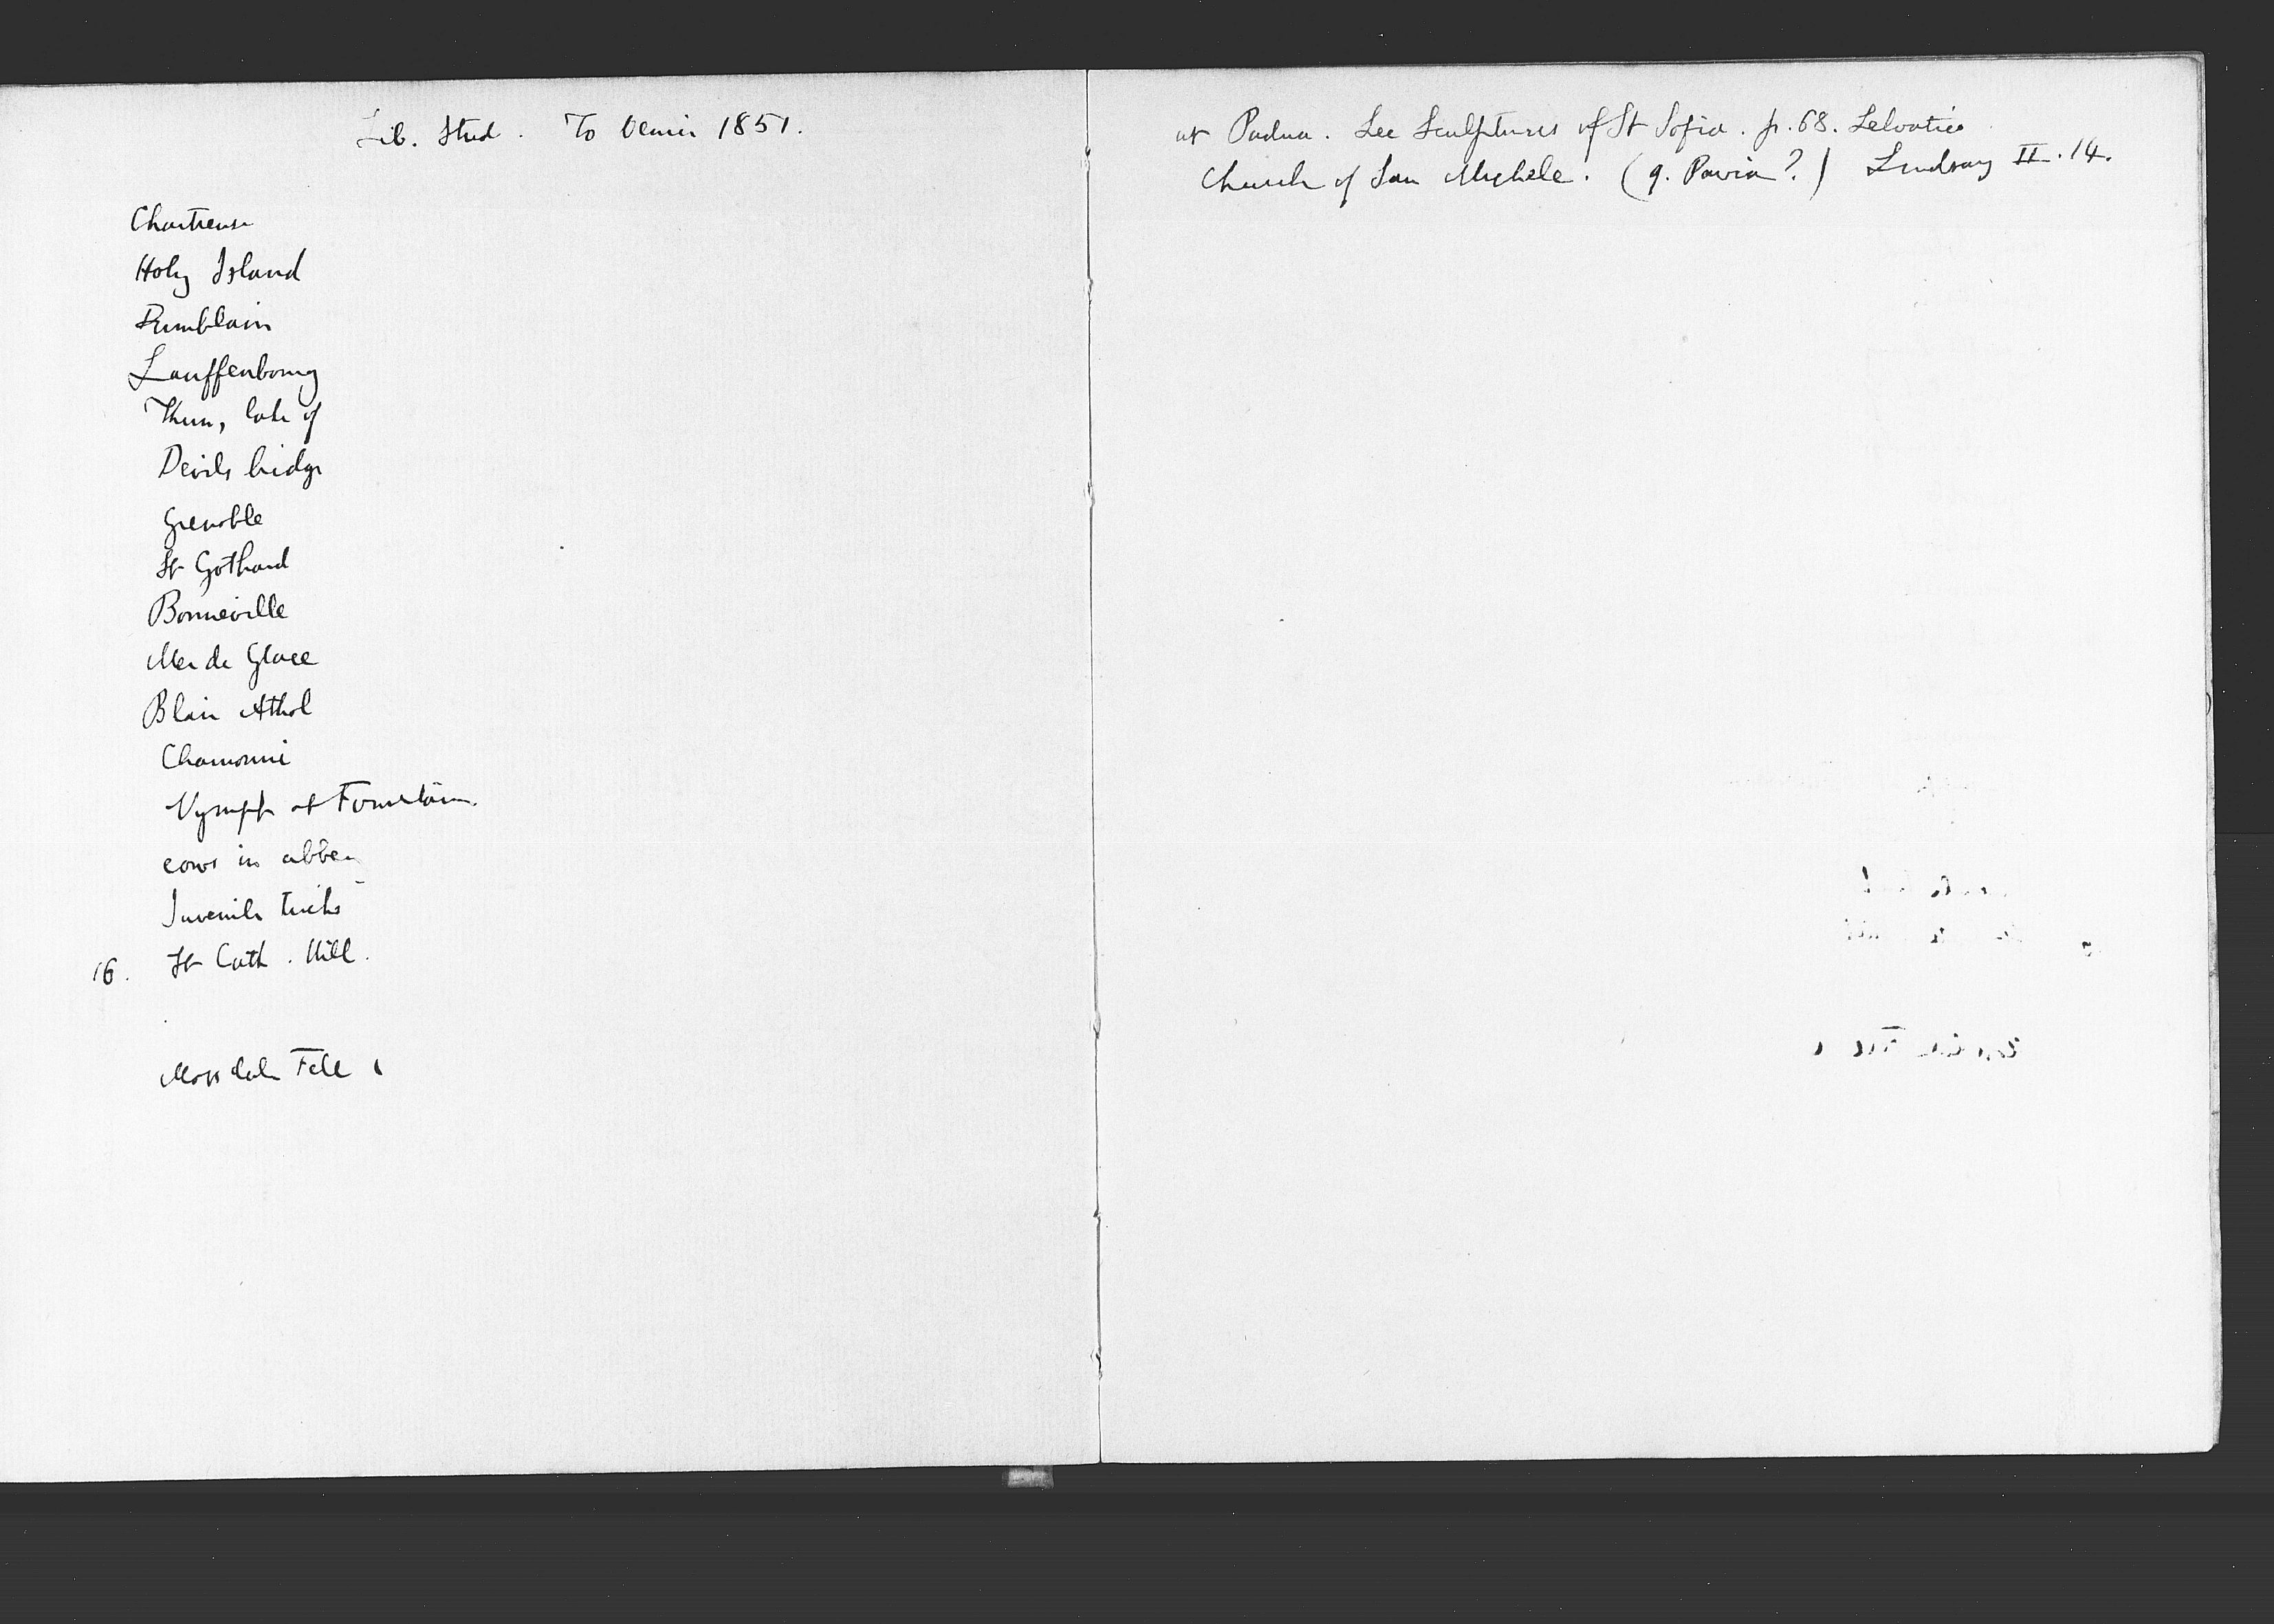 Lib. Stud. To Venice 1851.
Chartreuse
Holy Island
Dumblain
Lauffenbourg
Thun, lake of
Devils bridge
Grenoble
St Gothard
Bonneville
Mer de Glace
Blair Athol
Chamouni
Nymph at Fountain.
cows in abbey
Juvenile tricks
16. St Cath. Hill.
Mossdale Fall
at Padua. See Sculptures of St Sofia. p. 68. Selvatico
Church of San Michele. (q. Pavia?) Lindsay II. 14.